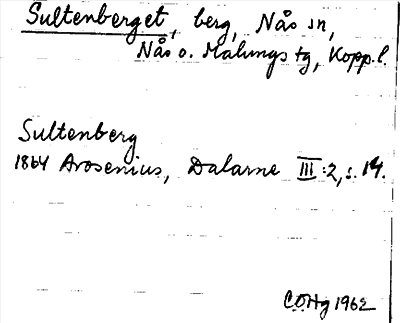 Sultenberget, berg, Nås sn,
Nås o. Malungs tg, Kopp. l.
Sultenberg
1864 Arosenius, Dalarne III:2, s. 14.
COHg 1962